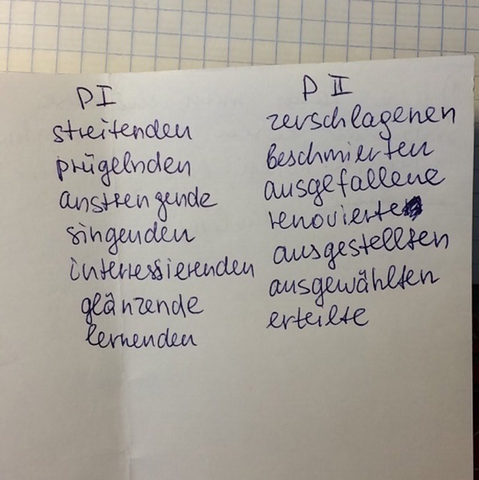 P I
streitenden
prügelnden
anstrengende
singenden
interessierenden
glänzende
lernenden
P II
zerschlagenen
beschmierten
ausgefallene
renovierte
ausgestellten
ausgewählten
erteilte